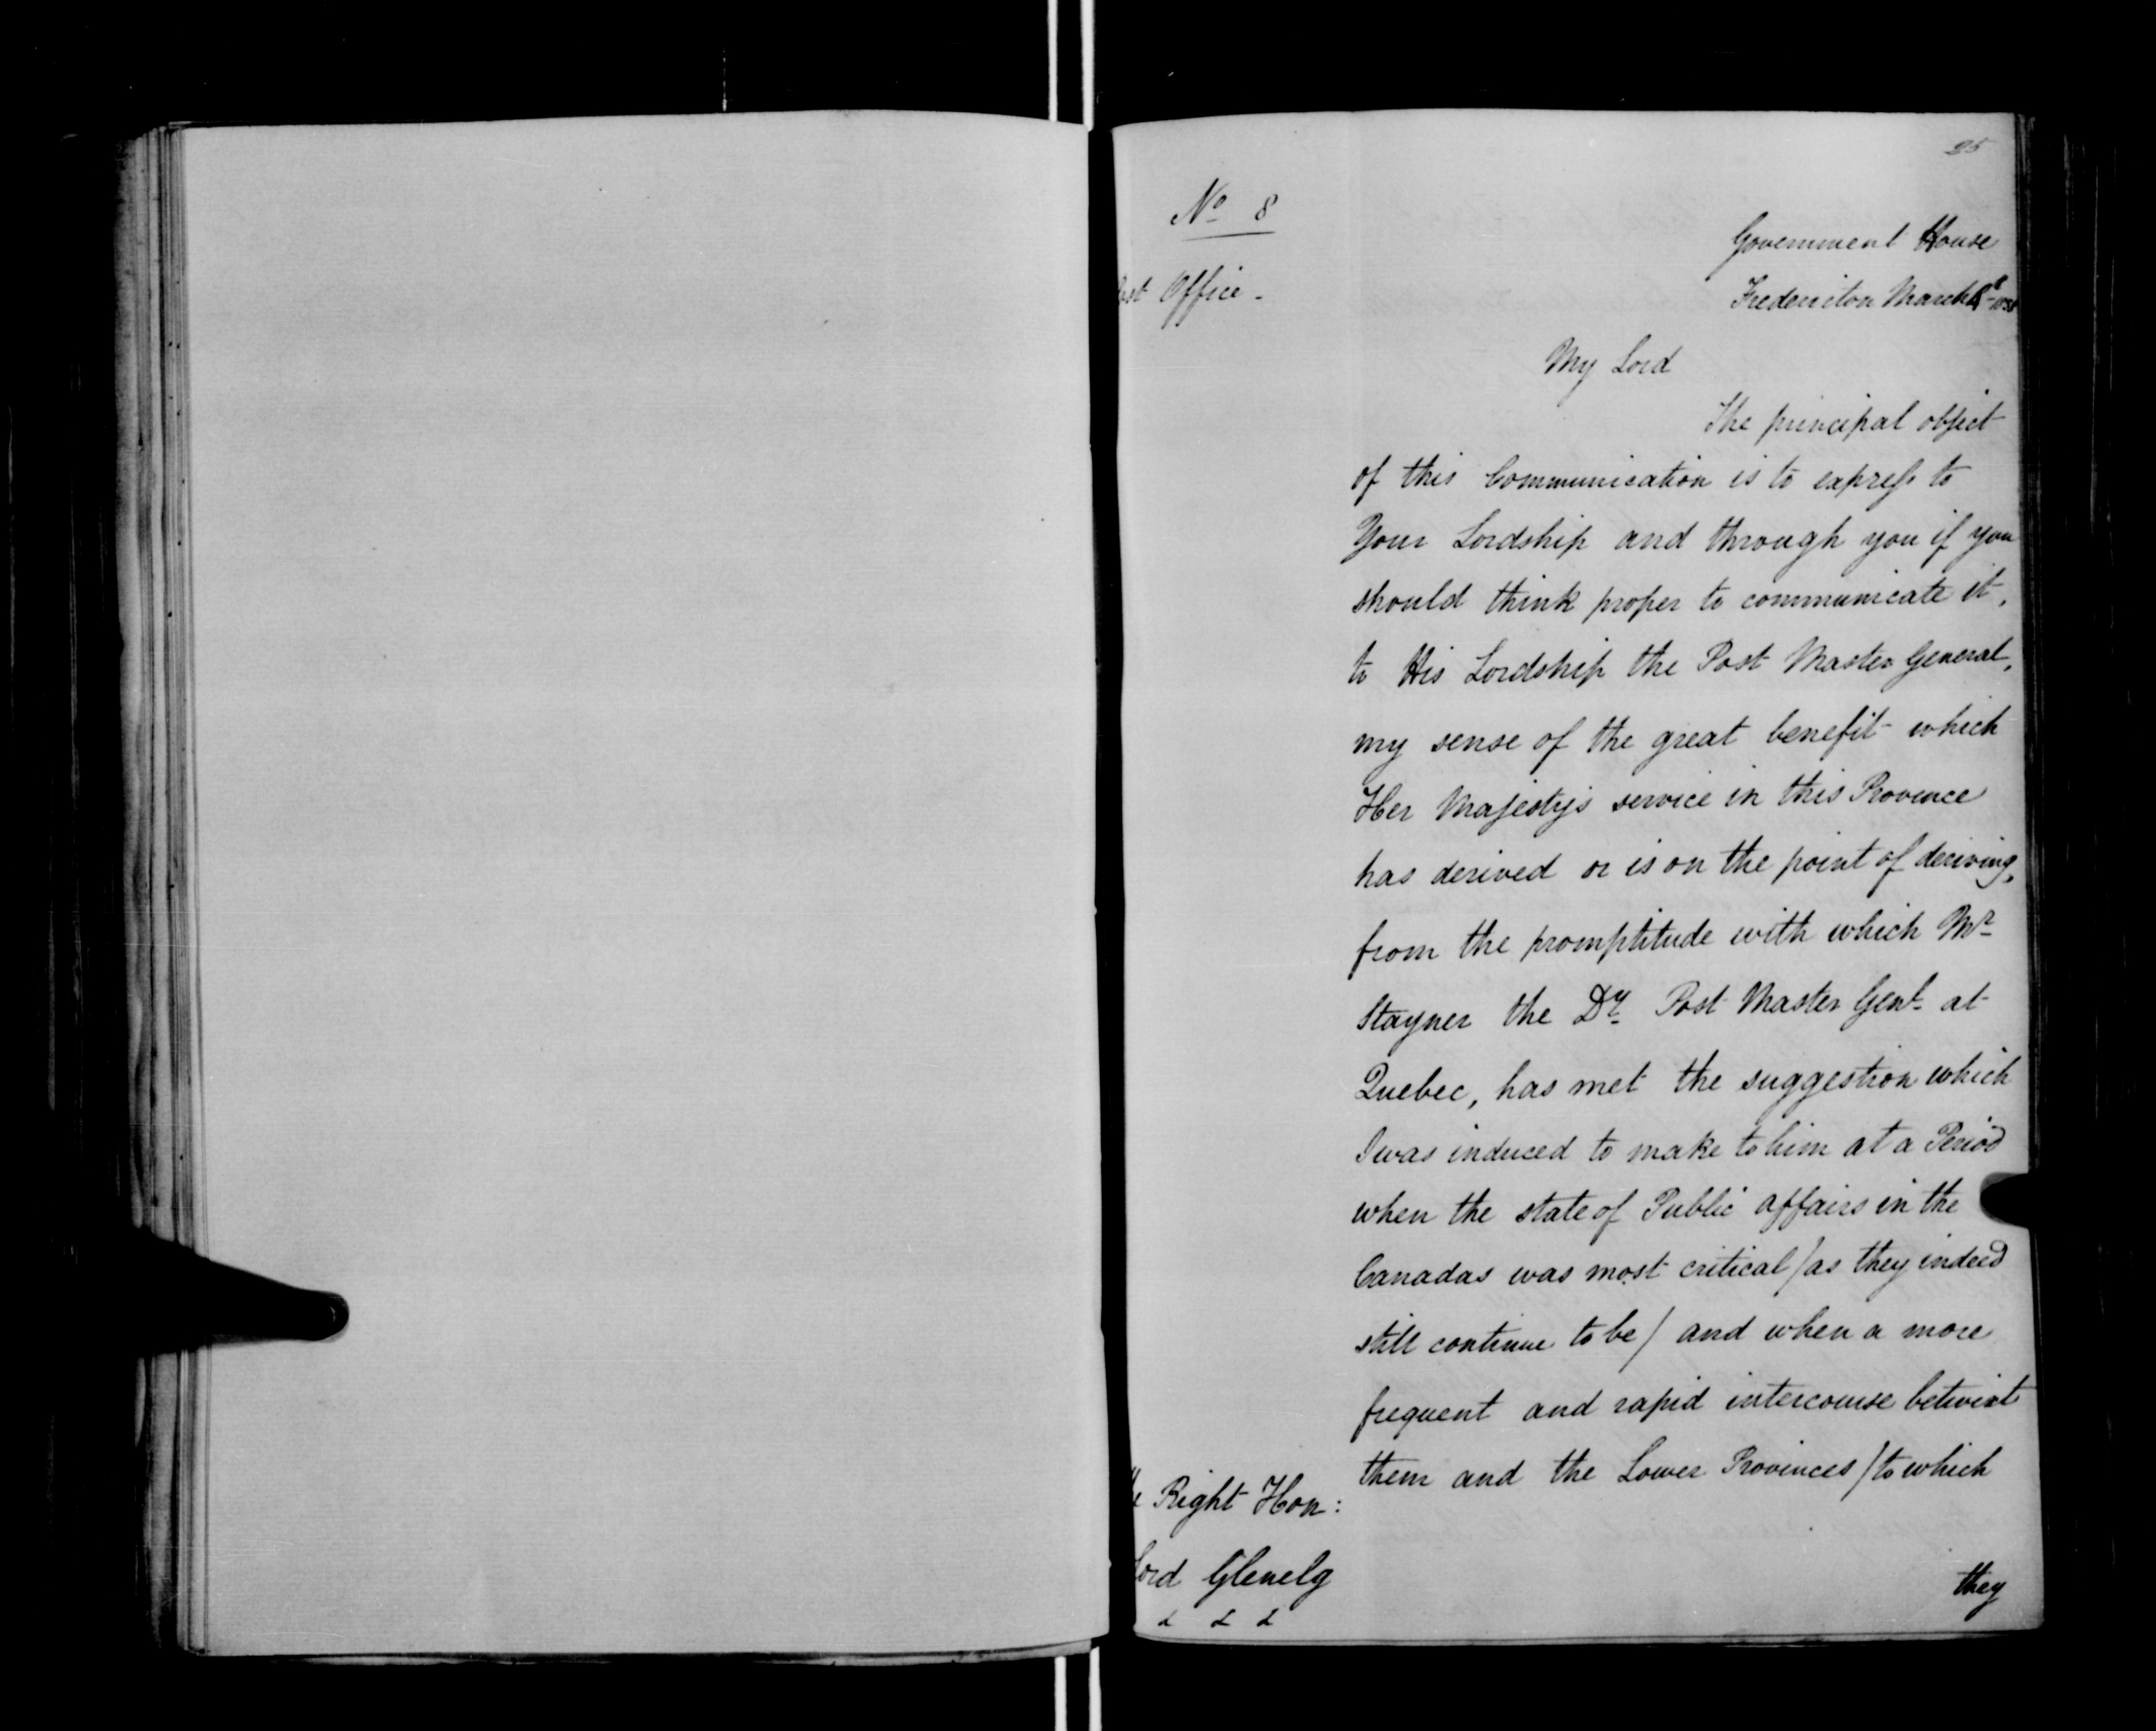 25
No 8
Post Office -
Government House
Fredericton March 8 1838
My Lord
The principal object
of this Communication is to express to
Your Lordship and through you if you
should think proper to communicate it,
to His Lordship the Post Master General,
my sense of the great benefit which
Her Majesty's service in this Province
has derived or is on the point of deriving,
from the promptitude with which Mr
Stayner the Dy Post Master Genl at
Quebec, has met the suggestion which
I was induced to make to him at a Period
when the state of Public affairs in the
Canadas was most critical / as they indeed
still continue to be / and when a more
frequent and rapid intercourse betwixt
them and the Lower Provinces / to which
Right Hon:
Lord Glenelg
& & &
they